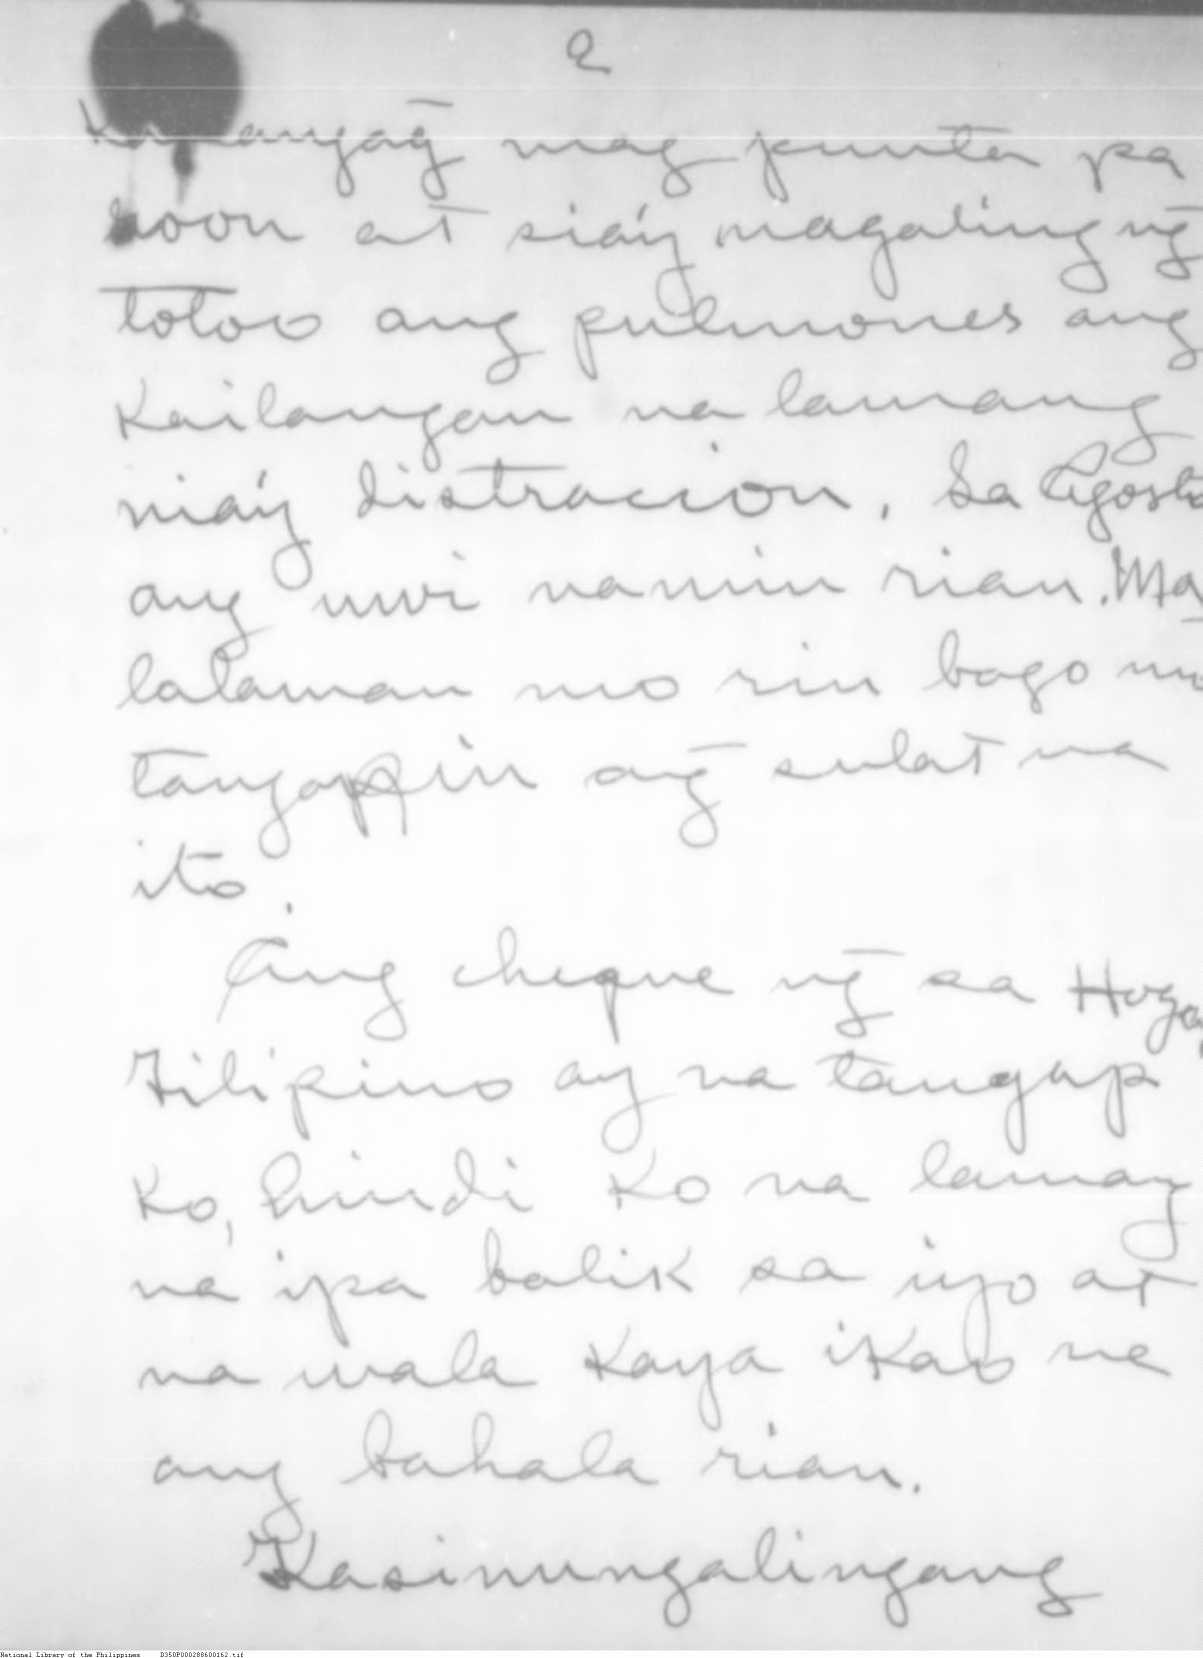 2
mag punta pa
noon at siáy magaling ng̃
totoo ang pulmones ang
Kailangan na lamang
niáy distracion. Sa Agosto
ang uwi namin rian. Ma
lalaman mo rin bago mo
tangapin ang̃ sulat na
ito.
Ang cheque ng̃ sa Hogar
Filipino ay na tangap
Ko, hindi Ko na lamang
na ipa balik sa iyo at
na wala Kaya iKao na
ang bahala rian.
Kasinungalingang
National Library of the Philippines D350P000288600162.tif